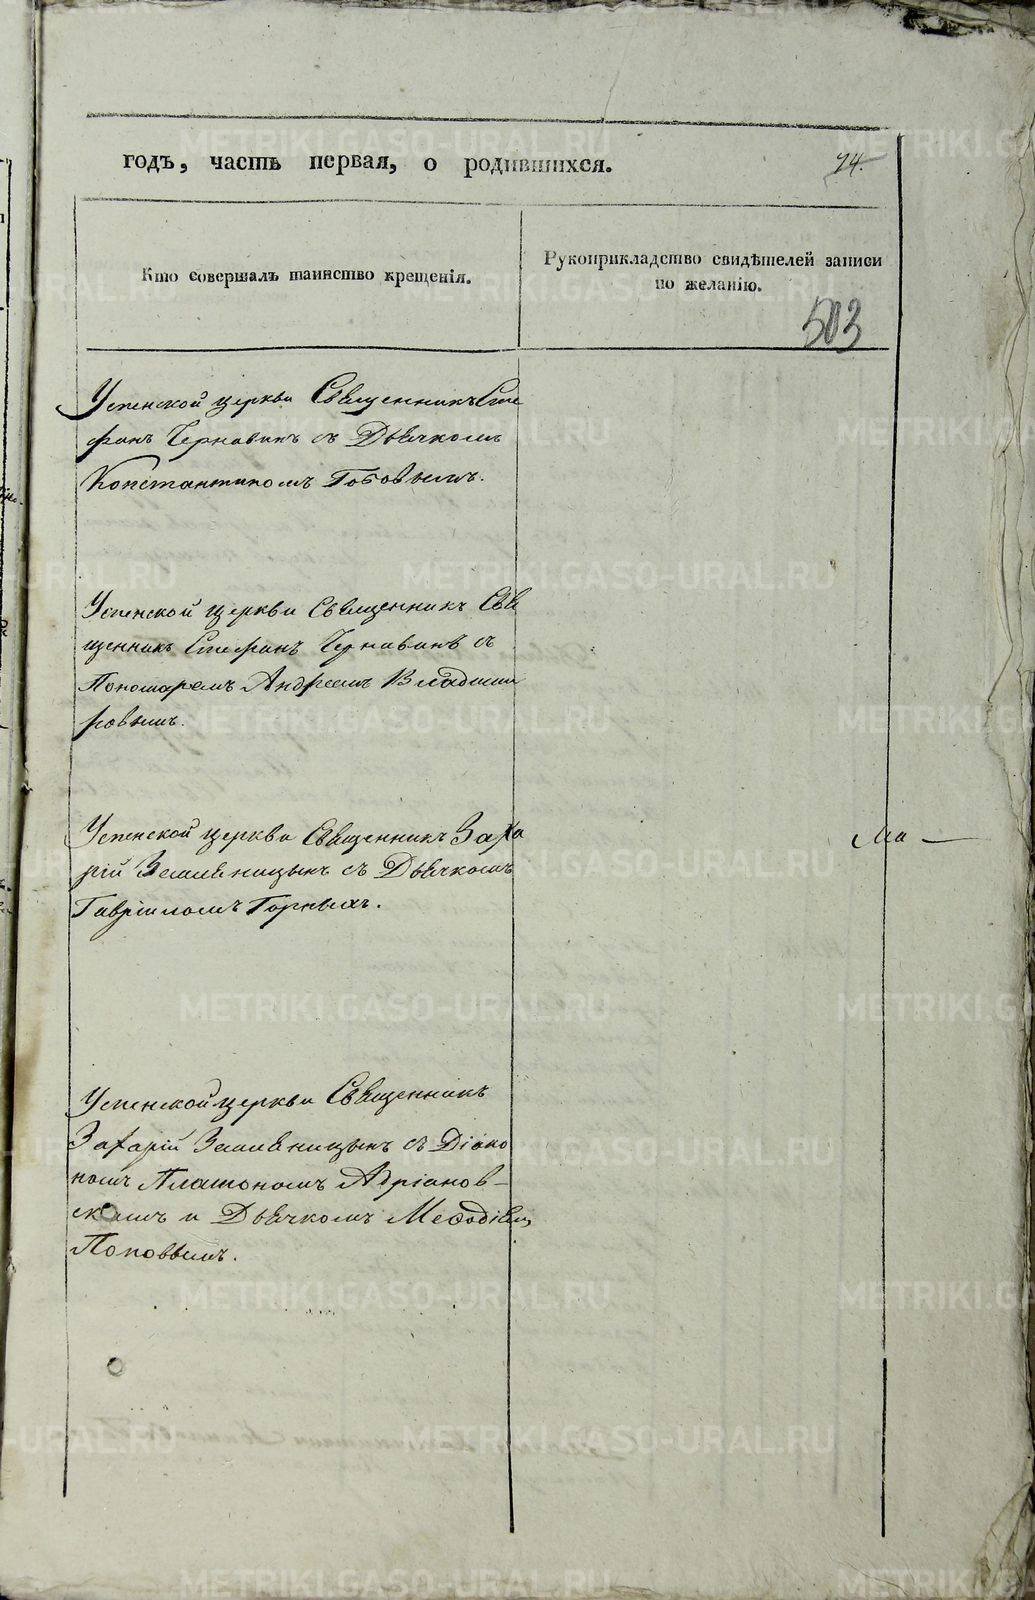 годъ, часть первая, о родившихся.
74.
Кто совершалъ таинство крещенія.
Рукоприкладство свидѣтелей записи
по желанію.
503
Успенской церкви Священникъ Сте
фанъ Чернавинъ съ Дьячкомъ
Константиномъ Поповымъ.
Успенской церкви Священникъ Свя
щенникъ Стефанъ Чернавинъ съ
Пономаремъ Андреемъ Владими
ровымъ.
Успенской церкви Священникъ Заха
рій Земляницынъ съ Дьячкомъ
Гавріиломъ Горныхъ.
Ма
Успенской церкви Священникъ
Захарій Земляницынъ съ Діако
номъ Платономъ Адріанов-
скимъ и Дьячкомъ Меѳодіемъ
Поповымъ.
METRIKI.GASO-URAL.RU